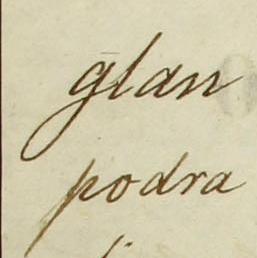 glan
podra